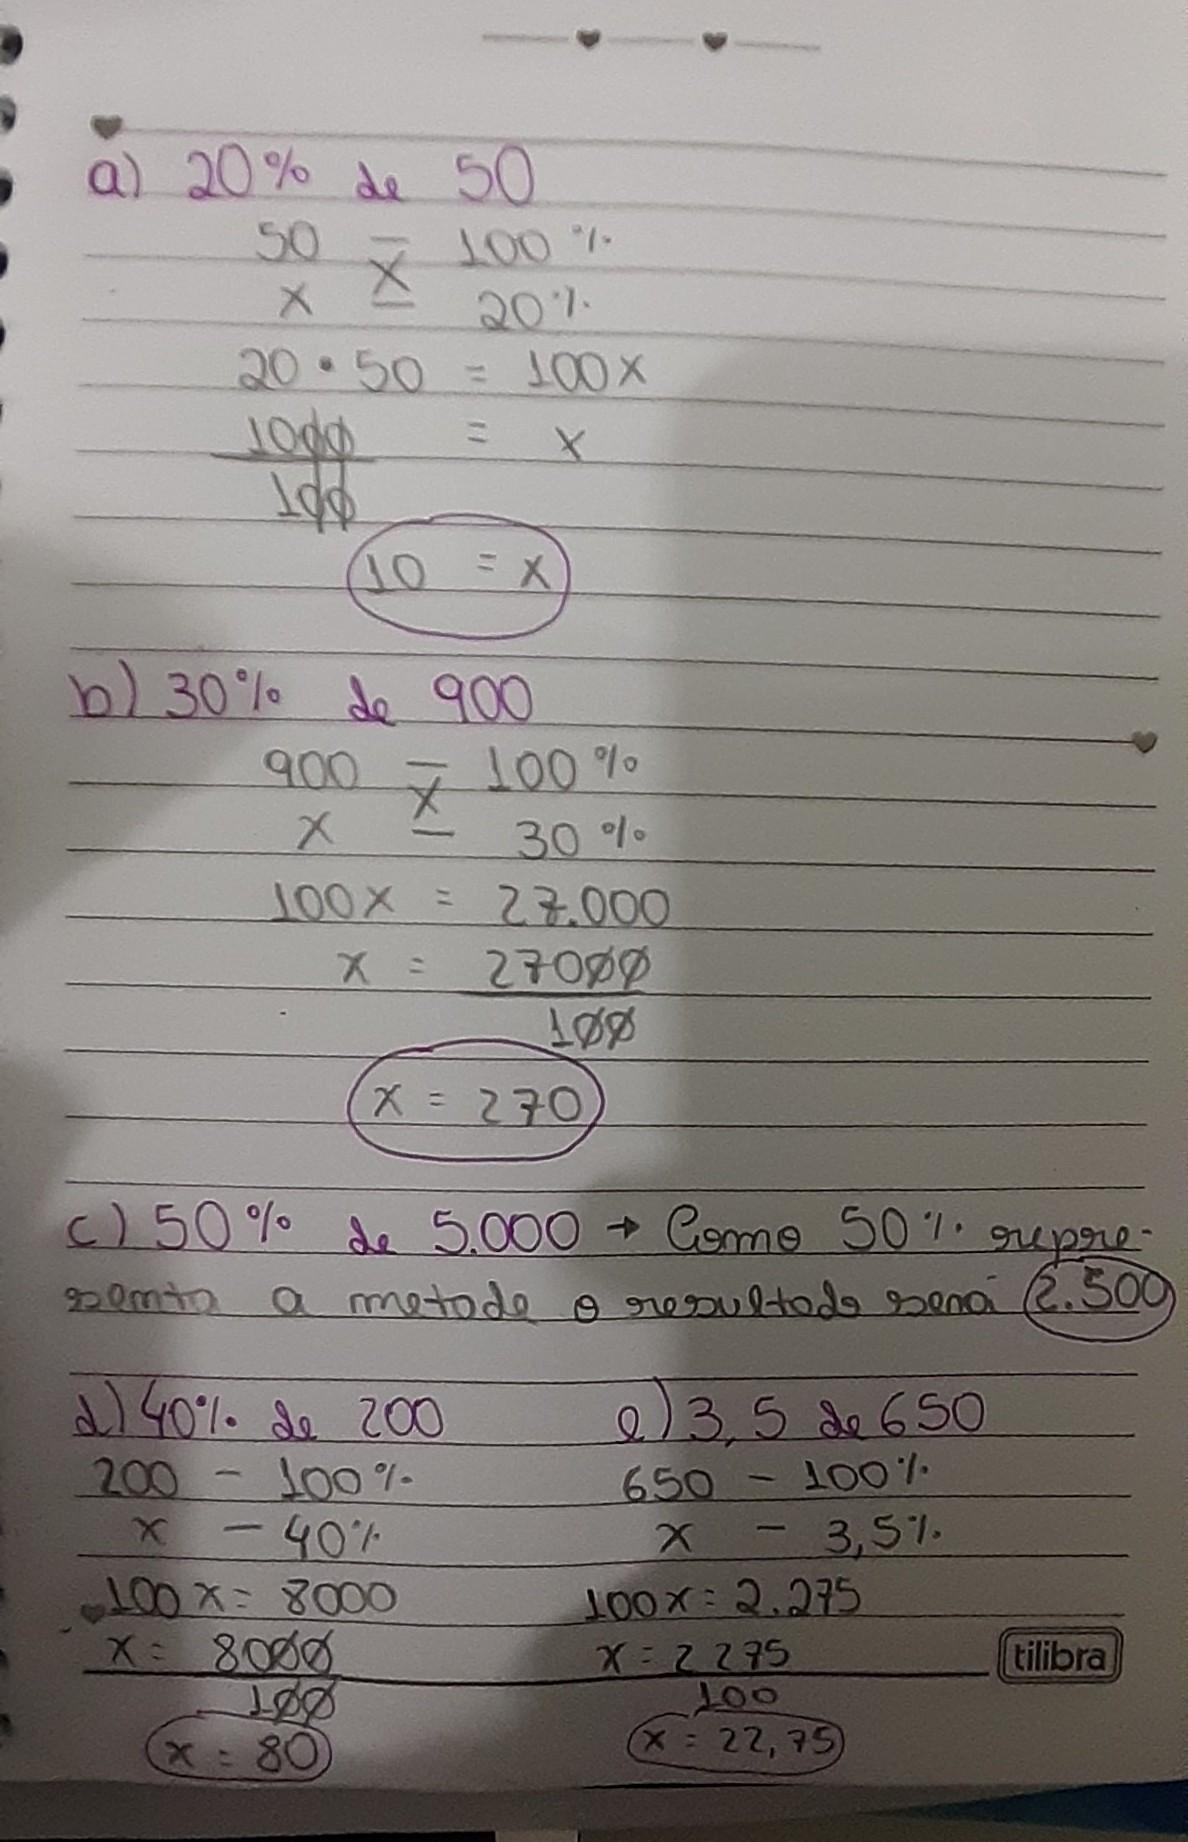 a) 20% de 50
50 — 100%
x
x — 20%
20 • 50 = 100x
1000 = x
100
10 = x
b) 30% de 900
900 — 100%
x
x — 30%
100x = 27.000
x = 27000
100
x = 270
c) 50% de 5.000 → Como 50% repre-
senta a metade o resultado será 2.500
d) 40% de 200
200 — 100%
x — 40%
100x = 8000
x = 8000
100
x = 80
e) 3,5 de 650
650 — 100%
x — 3,5%
100x = 2.275
x = 2275
100
x = 22,75
tilibra